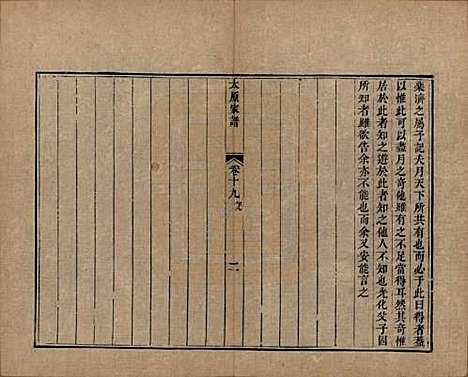 樂濟之屬予記夫月天下所共有也而必于此曰得者蓋
以惟此可以盡月之奇他雖有之不足當得耳然其奇惟
居於此者知之遊於此者知之他人不知也光化父子固
所知者雖欲告余亦不能也而余又安能言之
太原家譜
卷十九
二